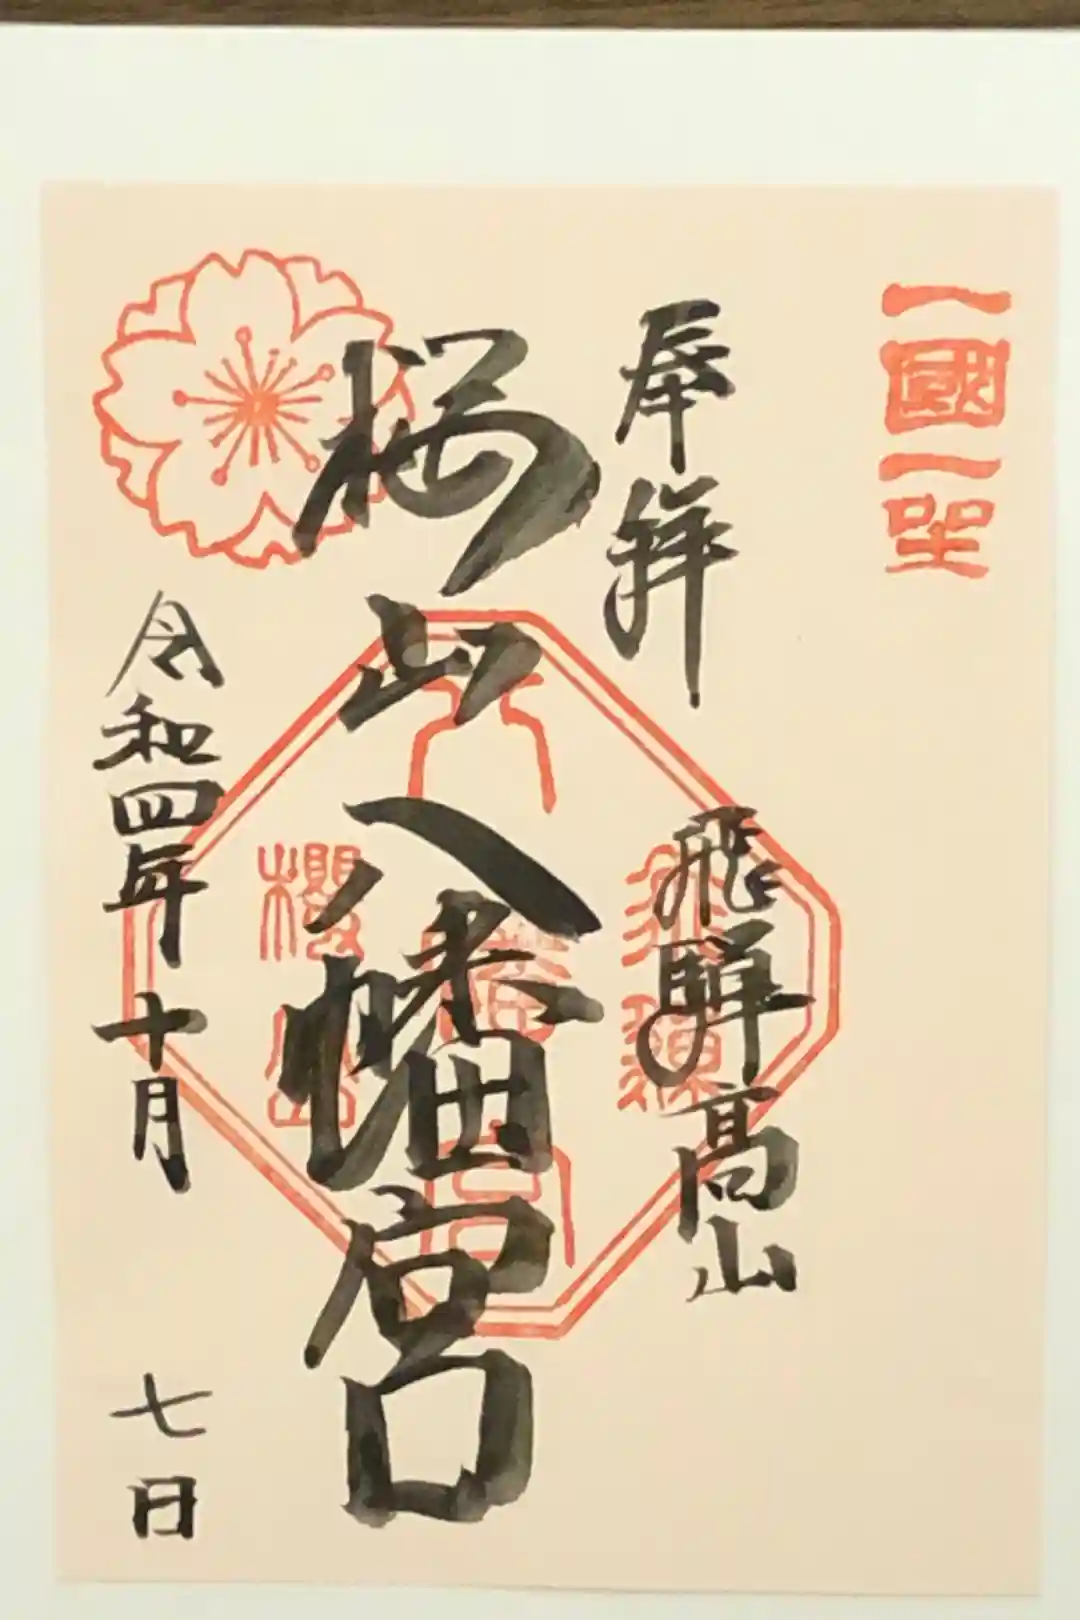 一國一社
奉拜
飛騨高山
桜山八幡宮
八幡宮
櫻山
令和四年十月七日